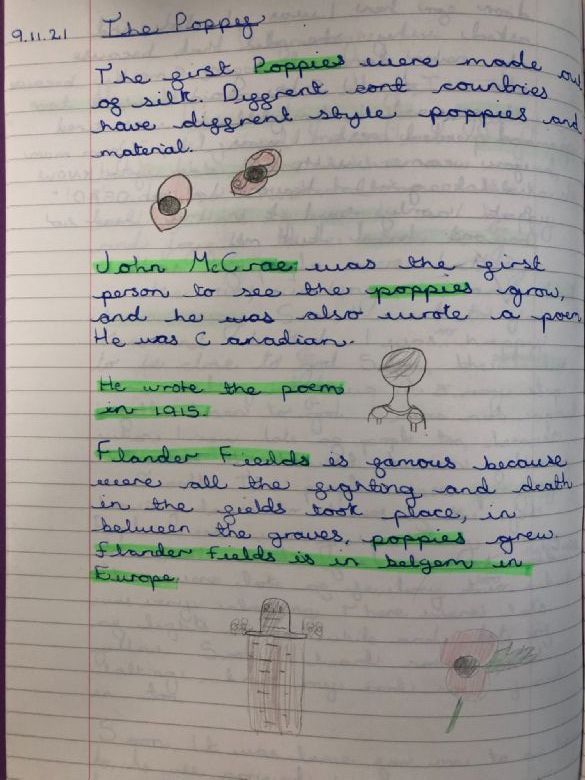 9.11.21 The Poppy
The first Poppies were made out
of silk. Diffrent cont countries
have diffrent style poppies and
material.
John McCrae was the first
person to see the poppies grow,
and he was also wrote a poem
He was Canadian.
He wrote the poem
in 1915.
Flander Fieilds is famous because
were all the fighting and death
in the fields took place, in
between the graves, poppies grew.
flander fields is in belgem in
Europe.